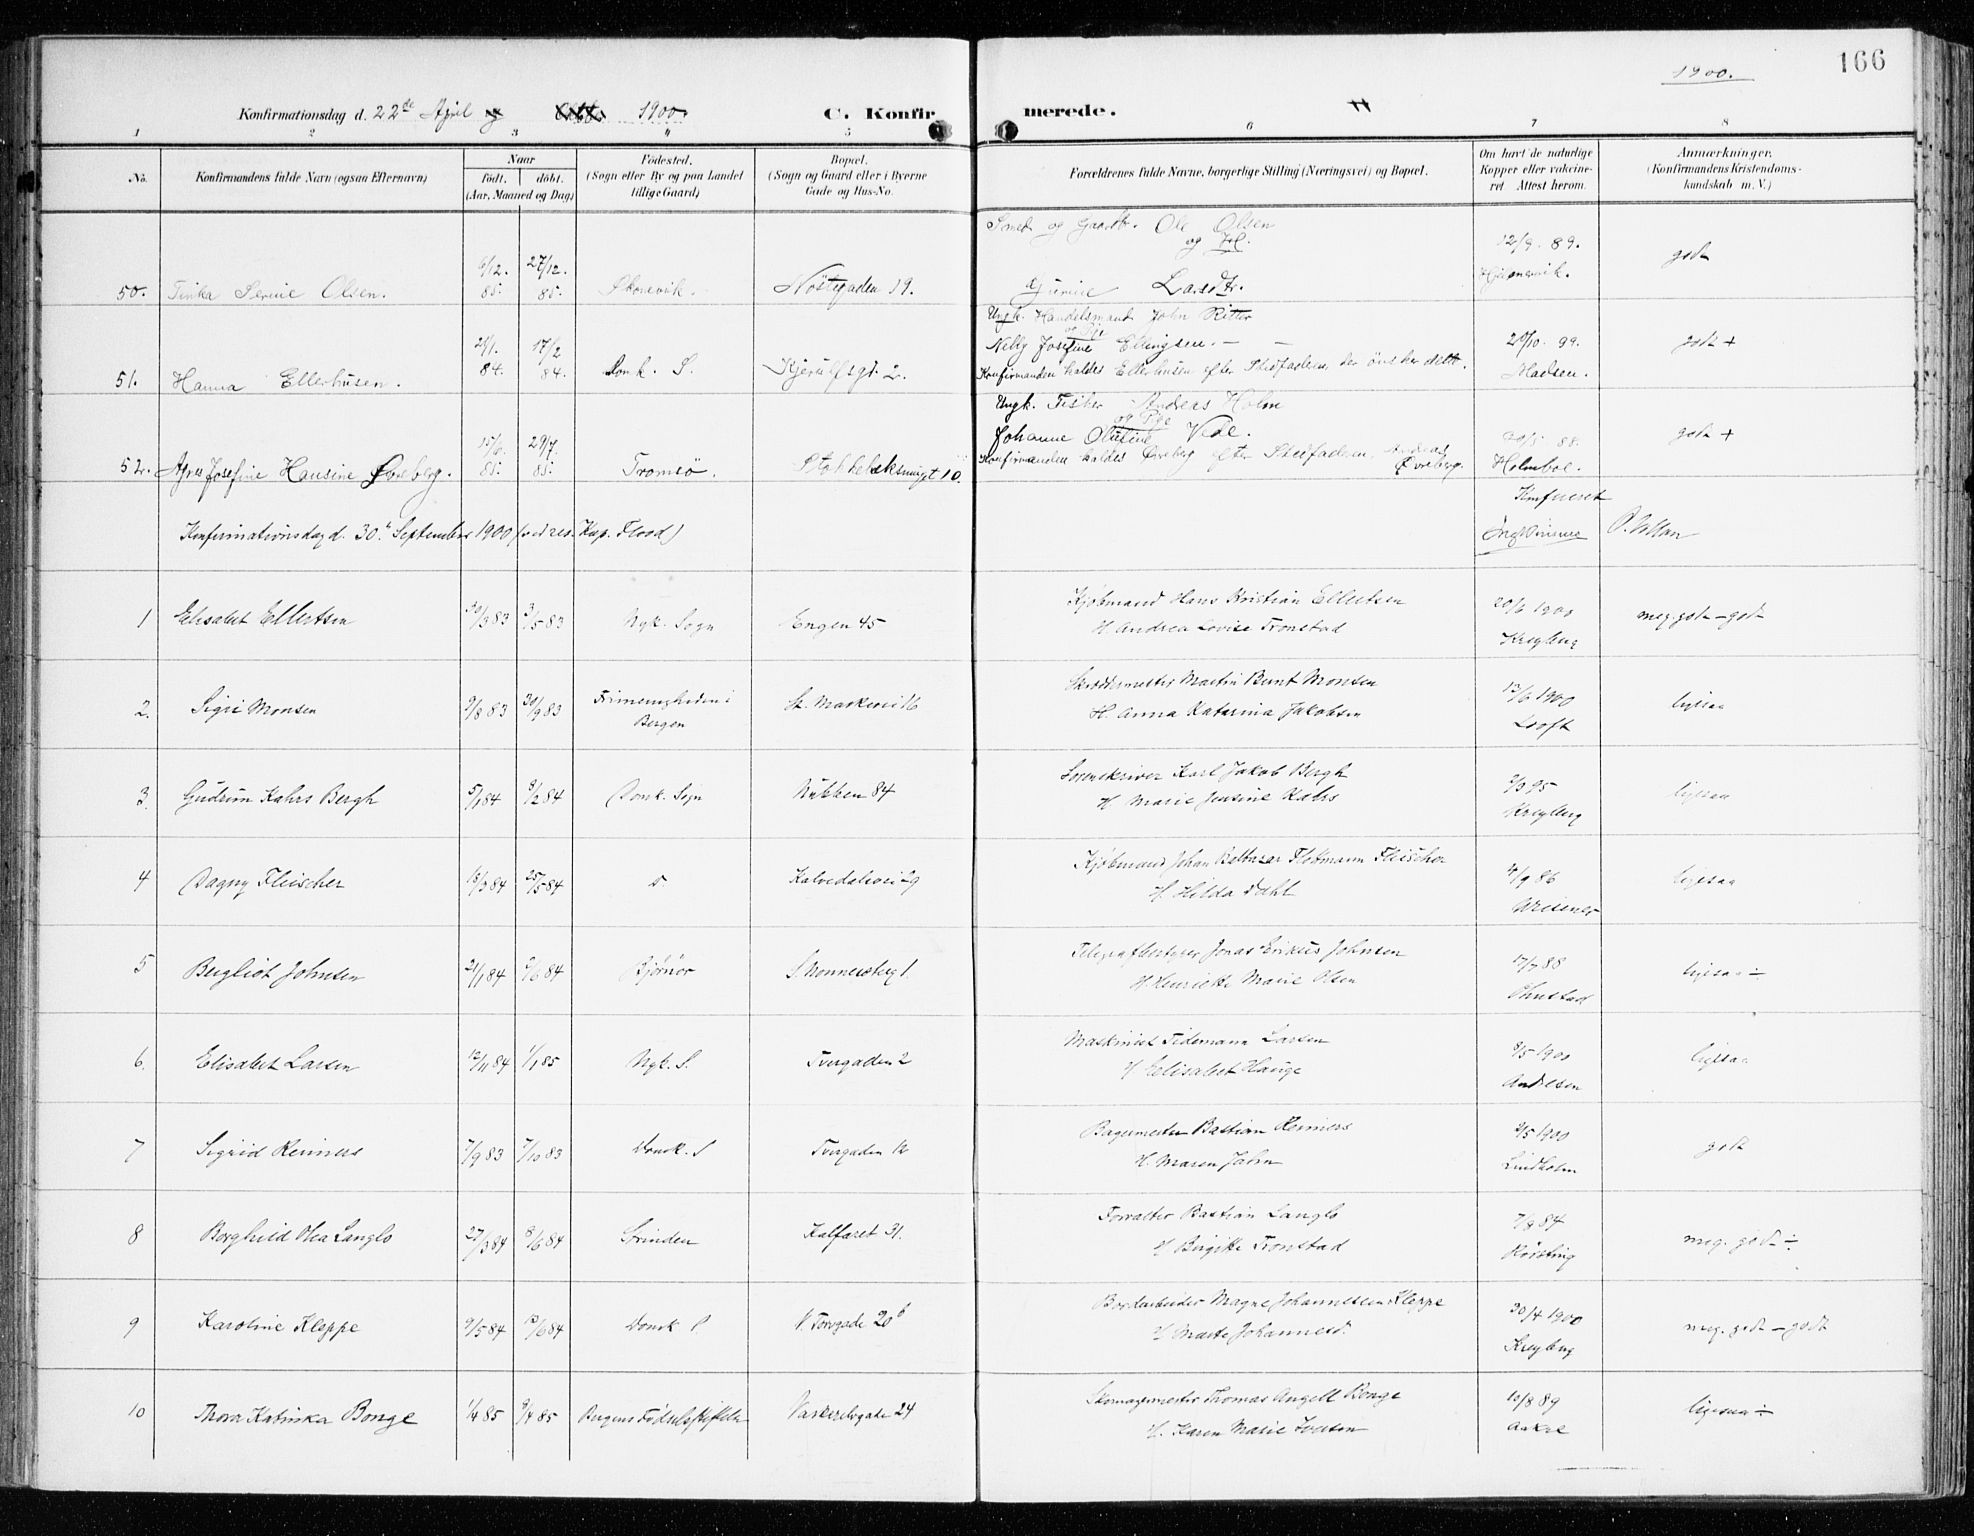 166
1900.
Konfirmationsdag d. 22de April 1900
C. Konfirmerede.
1 2 3 4 5 6 7 8
No.
Konfirmandens fulde Navn (ogsaa Efternavn)
Naar
født. døbt.
(Aar, Maaned og Dag)
Fødested.
(Sogn eller By og paa Landet
tillige Gaard)
Bopæl.
(Sogn og Gaard eller i Byerne
Gade og Hus-No.
Forældrenes fulde Navne, borgerlige Stilling (Næringsvei) og Bopæl.
Om havt de naturlige
Kopper eller vakcine-
ret Attest herom.
Anmærkninger.
(Konfirmandens Kristendoms-
kundskab m. V.)
Smed og Gaardbr. Ole Olsen
og H.
50. Tinka Serine Olsen. 6/12. 85. 27/12. 85. Skonevik. Nøstegaden 19. Gjurine Larsdtr. 12/9. 89. godt
Ungk. Handelsmand John Ritter
og Pige
Nelly Josefine Ellingsen. — —
51. Hanna Ellerhusen. 84. 17/2 84. Domk. S. Kjerulfsgt. 2. Konfirmanden kaldes Ellerhusen efter Stedfaderen, der ønsker dette. 99. Madsen. godt +
Ungk. Fisker Andreas Holm
og Pige
Johanne Olufine Vede.
52. Agnes Josefine Hansine Øvreberg. 15/6. 85. 29/7. 85. Tromsø. Stokkebæksmuget 10. Konfirmanden kaldes Øvreberg efter Stedfaderen Andreas Øvreberg. 88. Holmboe. godt +
Konfirmationsdag d. 30. September 1900 (ved res. Kap. Flood)
Konfereret
1 Elisabet Ellertsen 30/3 83 3/5 83 Nyk. Sogn Engen 45 Kjøbmand Hans Kristian Ellertsen
H. Andrea Lovise Tronstad 20/6 1900 Kreyberg meg. godt – godt
2. Sigri Monsen 9/8 83 30/9 83 Frimenigheden i Bergen St. Markevei 16 Skræddermester Martin Bernt Monsen
H. Anna Katarina Jakobsen 13/6 1900 Looft ligesaa
3. Gudrun Kahrs Bergh 5/1 84 8/2 84 Domk. Sogn Nubben 84 Sorenskriver Karl Jakob Bergh
H. Marie Jensine Kahrs 95 Kreyberg ligesaa
4 Dagny Fleischer 18/3 84 25/5 84 d. Kalvedalsvei 29 Kjøbmand Johan Baltazar Flottmann Fleischer
H. Hilda Dahl 86 Wiesener ligesaa
5 Bergliot Johnsen 21/1 84 2/6 84 Bjørnør S. Nonnesæterg 1. Telegrafbestyrer Jonas Erikus Johnsen
H. Henriette Marie Olsen 17/7 88 Ohnstad ligesaa ÷
6. Elisabet Larsen 12/11 84 1/1 85 Nyk. S. Tvergaden 2 Maskinist Tidemann Larsen
H. Elisabet Hauge 8/5 1900 Andresen ligesaa
7 Sigrid Reimers 7/9 83 7/10 83 Domk. S Tvergaden 12 Bagermester Bastian Reimers
H. Maren Jahn 9/5 1900 Lindholm godt
8 Borghild Olea Langlo 27/3 84 8/6 84 Strinden Kalfaret 31. Forvalter Bastian Langlo
H. Birgitte Tronstad 84 meg. godt ÷
9 Karoline Kleppe 9/5 84 84 Domk S V. Torvgade 20b Bordarbeider Magne Johannessen Kleppe
H. Marte Johannesd. 30/4 1900 Kreyberg meg. godt – godt
10 Thora Katinka Bonge 1/4 85 8/4 85 Bergens Fødselsstiftelse Vaskerelvgade 24 Skomagermester Thomas Angell Bonge
H. Karen Marie Iversen 10/8 89 Aakre ligesaa ÷